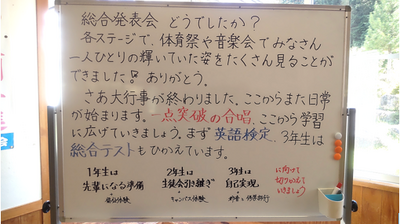 総合発表会 どうでしたか?
各ステージで、体育祭や音楽会でみなさん
一人ひとりの輝いていた姿をたくさん見ることが
できました! ありがとう。
さあ大行事が終わりました。ここからまた日常
が始まります。一点突破の合唱、ここから学習
に広げていきましょう。まず英語検定、3年生は
総合テストもひかえています。
1年生は
先輩になる準備
2年生は
生徒会引継ぎ
キャンパス体験
3年生は
自己実現
に向けて
切りかえて
いきましょう